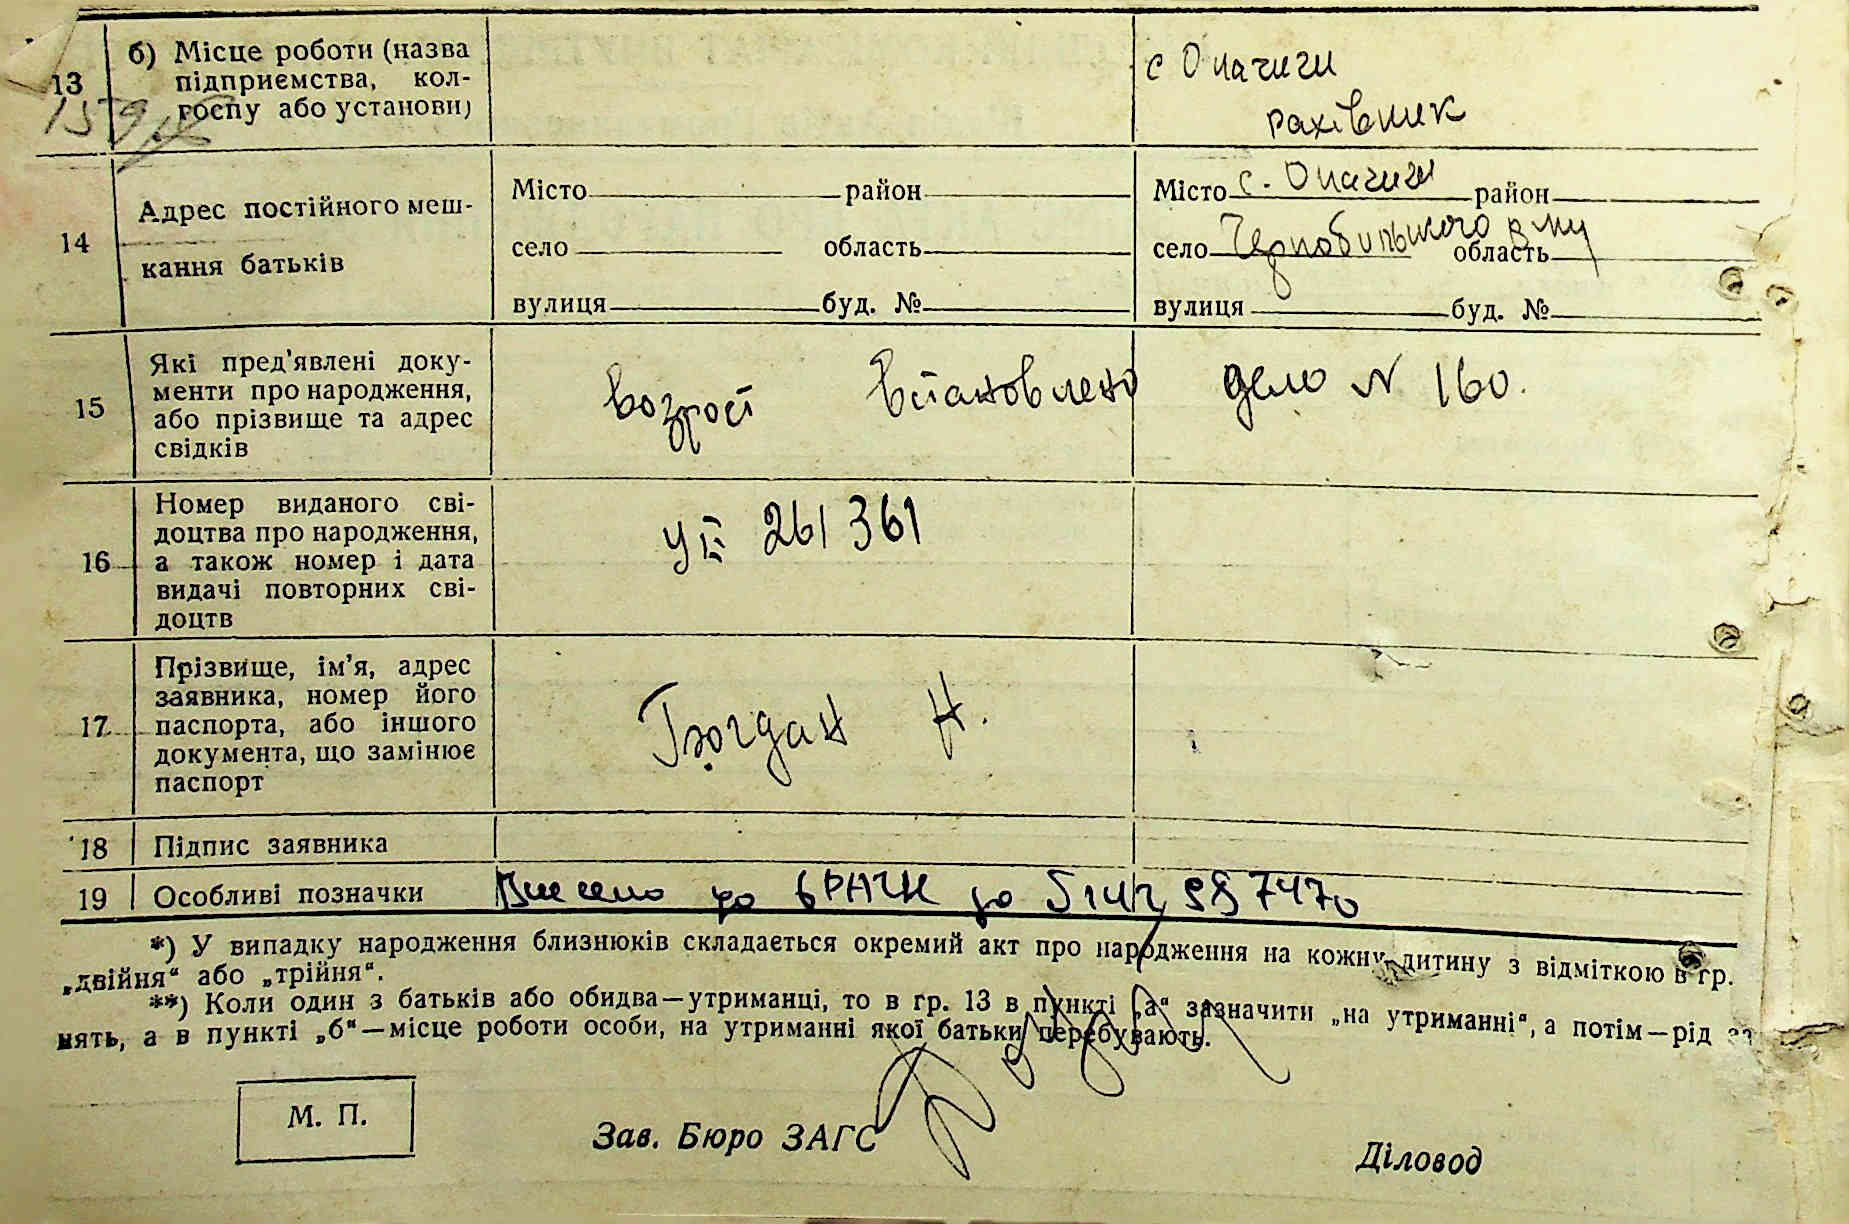 13 б) Місце роботи (назва
підприємства, кол-
госпу або установи)
с Опачичи
рахівник
14 Адрес постійного меш-
кання батьків
Місто район
село область
вулиця буд. №
Місто с. Опачичи район
село Чернобильского р-ну область
вулиця буд. №
15 Які пред'явлені доку-
менти про народження,
або прізвище та адрес
свідків
возрост встановлено дело N 160.
16 Номер виданого сві-
доцтва про народження,
а також номер і дата
видачі повторних сві-
доцтв
261361
17 Прізвище, ім'я, адрес
заявника, номер його
паспорта, або іншого
документа, що замінює
паспорт
Н.
18 Підпис заявника
19 Особливі позначки Внесено до
*) У випадку народження близнюків складається окремий акт про народження на кожну дитину з відміткою в гр.
„двійня“ або „трійня“.
**) Коли один з батьків або обидва—утриманці, то в гр. 13 в пункті „а“ зазначити „на утриманні“, а потім—рід за
нять, а в пункті „б“—місце роботи особи, на утриманні якої батьки перебувають.
М. П.
Зав. Бюро ЗАГС
Діловод